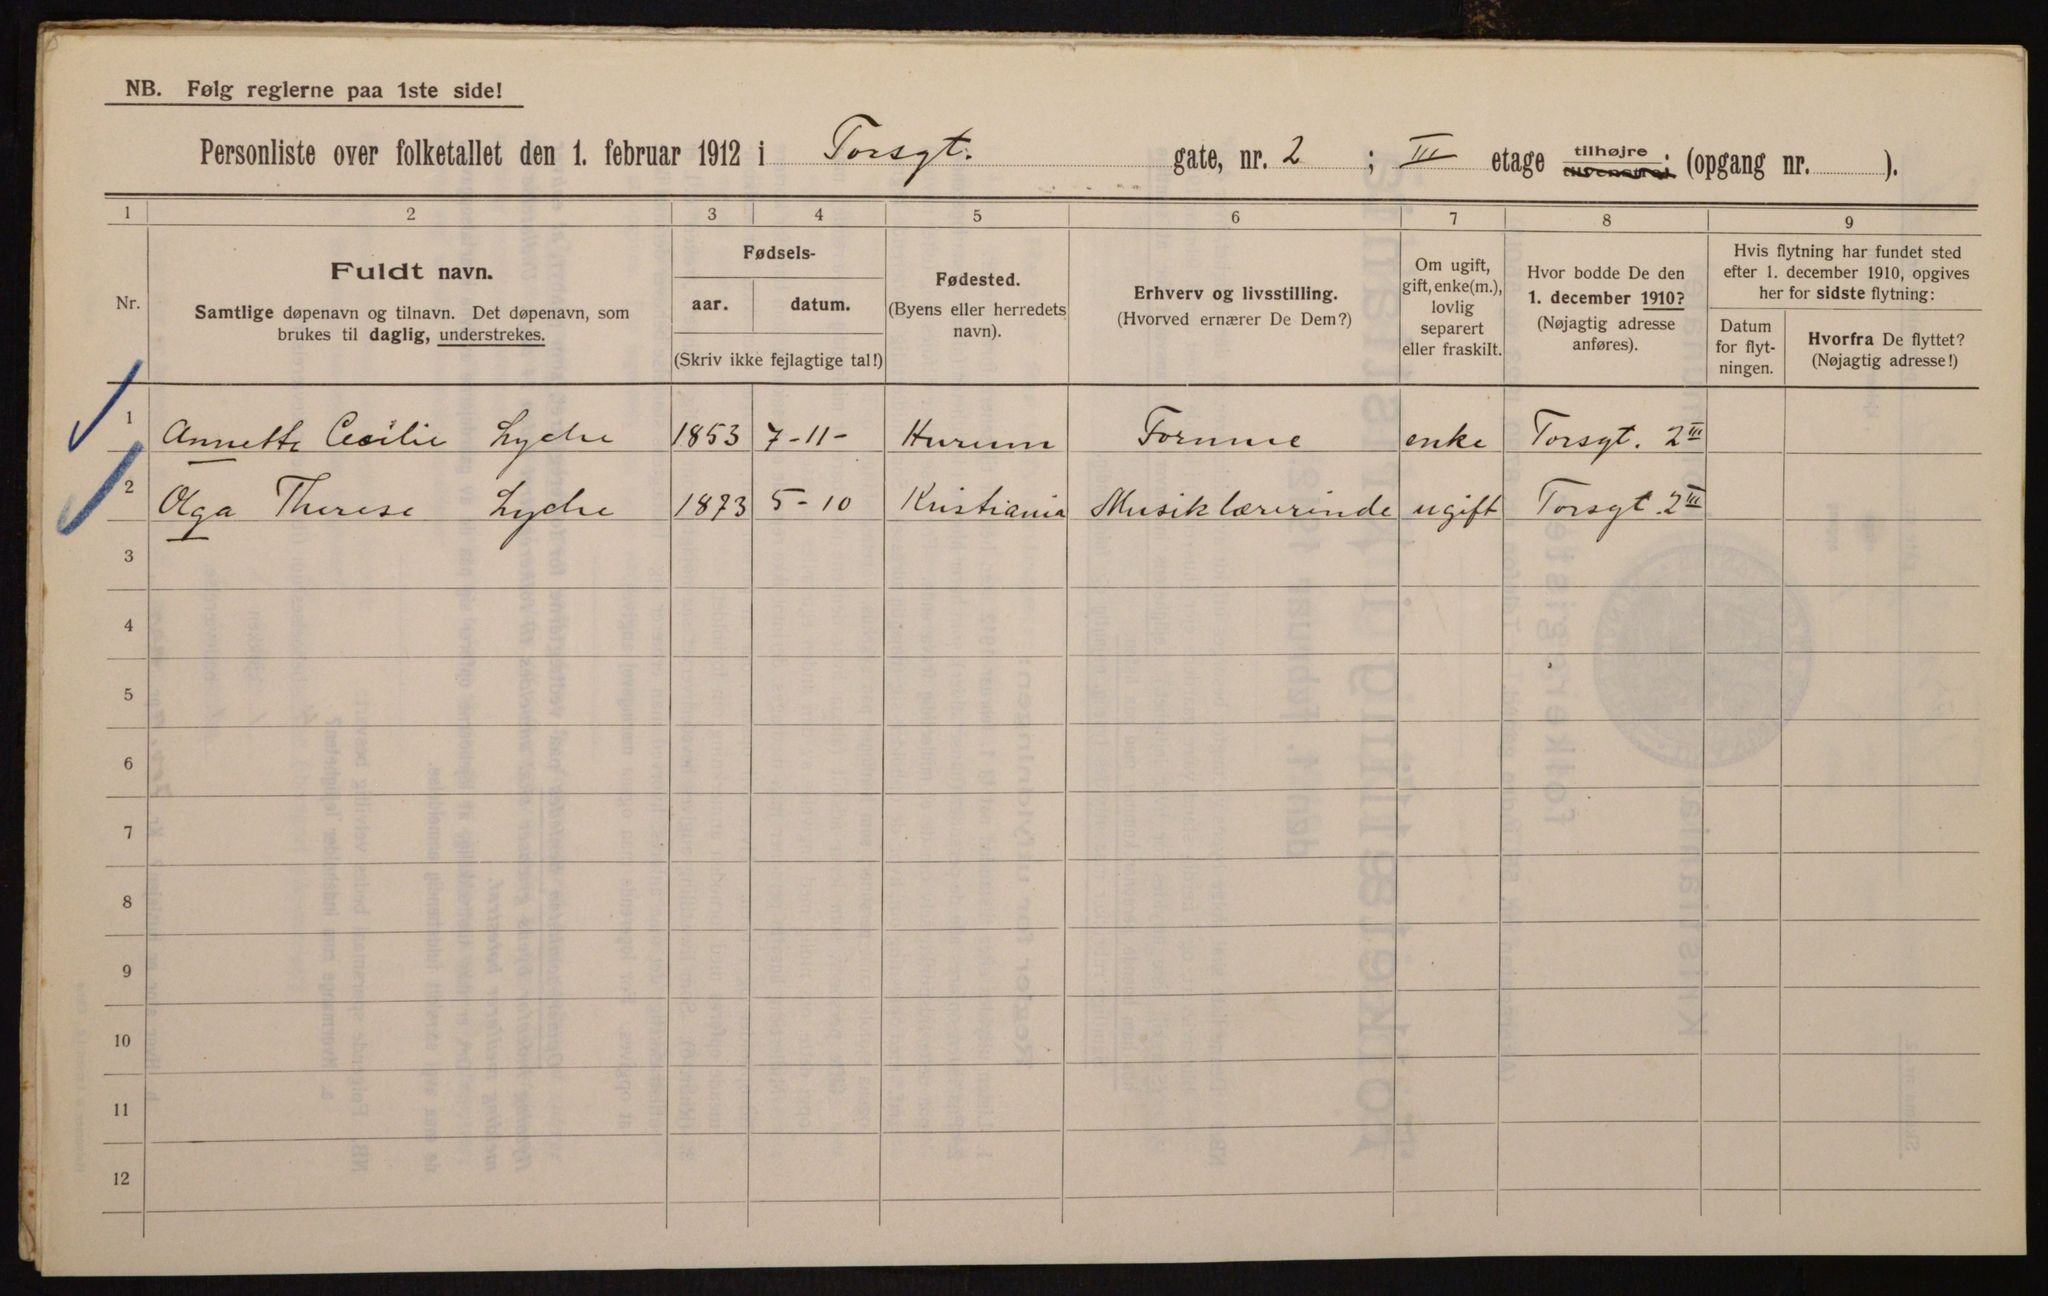 NB. Følg reglerne paa 1ste side!
Personliste over folketallet den 1. februar 1912 i Torsgt. gate, nr. 2 ; III etage tilhøjre tilvenstre; (opgang nr. ).
1 2 3 4 5 6 7 8 9
Nr.
Fuldt navn.
Samtlige døpenavn og tilnavn. Det døpenavn, som
brukes til daglig, understrekes.
Fødsels-
aar. datum.
(Skriv ikke fejlagtige tal!)
Fødested.
(Byens eller herredets
navn).
Erhverv og livsstilling.
(Hvorved ernærer De Dem?)
Om ugift,
gift, enke(m.),
lovlig
separert
eller fraskilt.
Hvor bodde De den
1. december 1910?
(Nøjagtig adresse
anføres).
Hvis flytning har fundet sted
efter 1. december 1910, opgives
her for sidste flytning:
Datum
for flyt-
ningen.
Hvorfra De flyttet?
(Nøjagtig adresse!)
1 Annette Cecilie Lyche 1853 7-11- Hurum Formue enke Torsgt. 2 III
2 Olga Therese Lyche 1873 5-10 Kristiania Musiklærerinde ugift Torsgt. 2 III
3
4
5
6
7
8
9
10
11
12